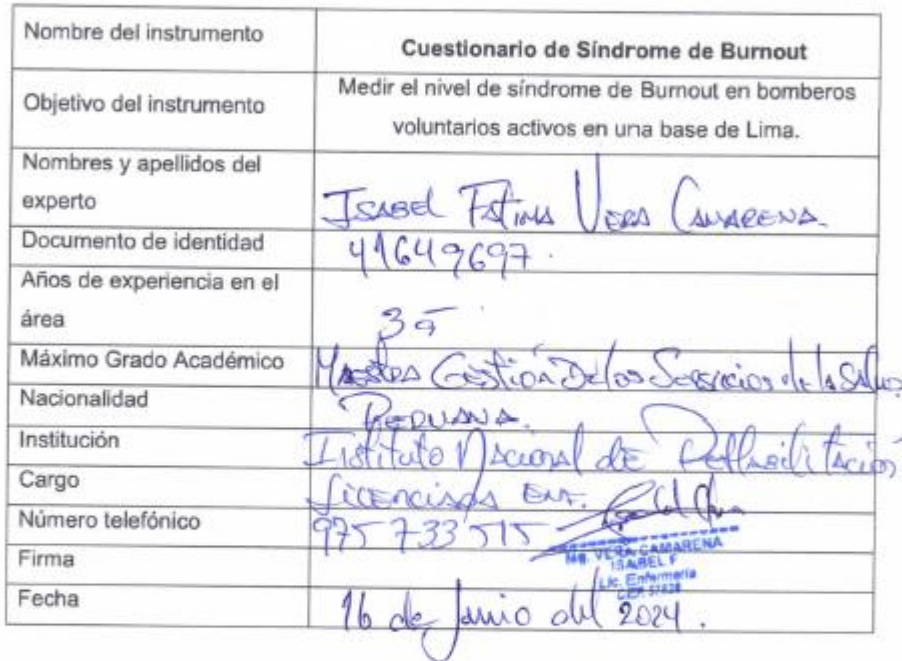 Nombre del instrumento
Cuestionario de Síndrome de Burnout
Objetivo del instrumento
Medir el nivel de síndrome de Burnout en bomberos
voluntarios activos en una base de Lima.
Nombres y apellidos del
experto
Isabel Fatima Vera Camarena.
Documento de identidad
41649697.
Años de experiencia en el
área
3 a
Máximo Grado Académico
Maestra Gestión De los Servicios de la Salud
Nacionalidad
Peruana.
Institución
Instituto Nacional de Rehabilitación
Cargo
Licenciada Enf.
Número telefónico
975 733 515
Firma
Mg. VERA CAMARENA
ISABEL F
Lic. Enfermería
CEP
Fecha
16 de Junio del 2024.